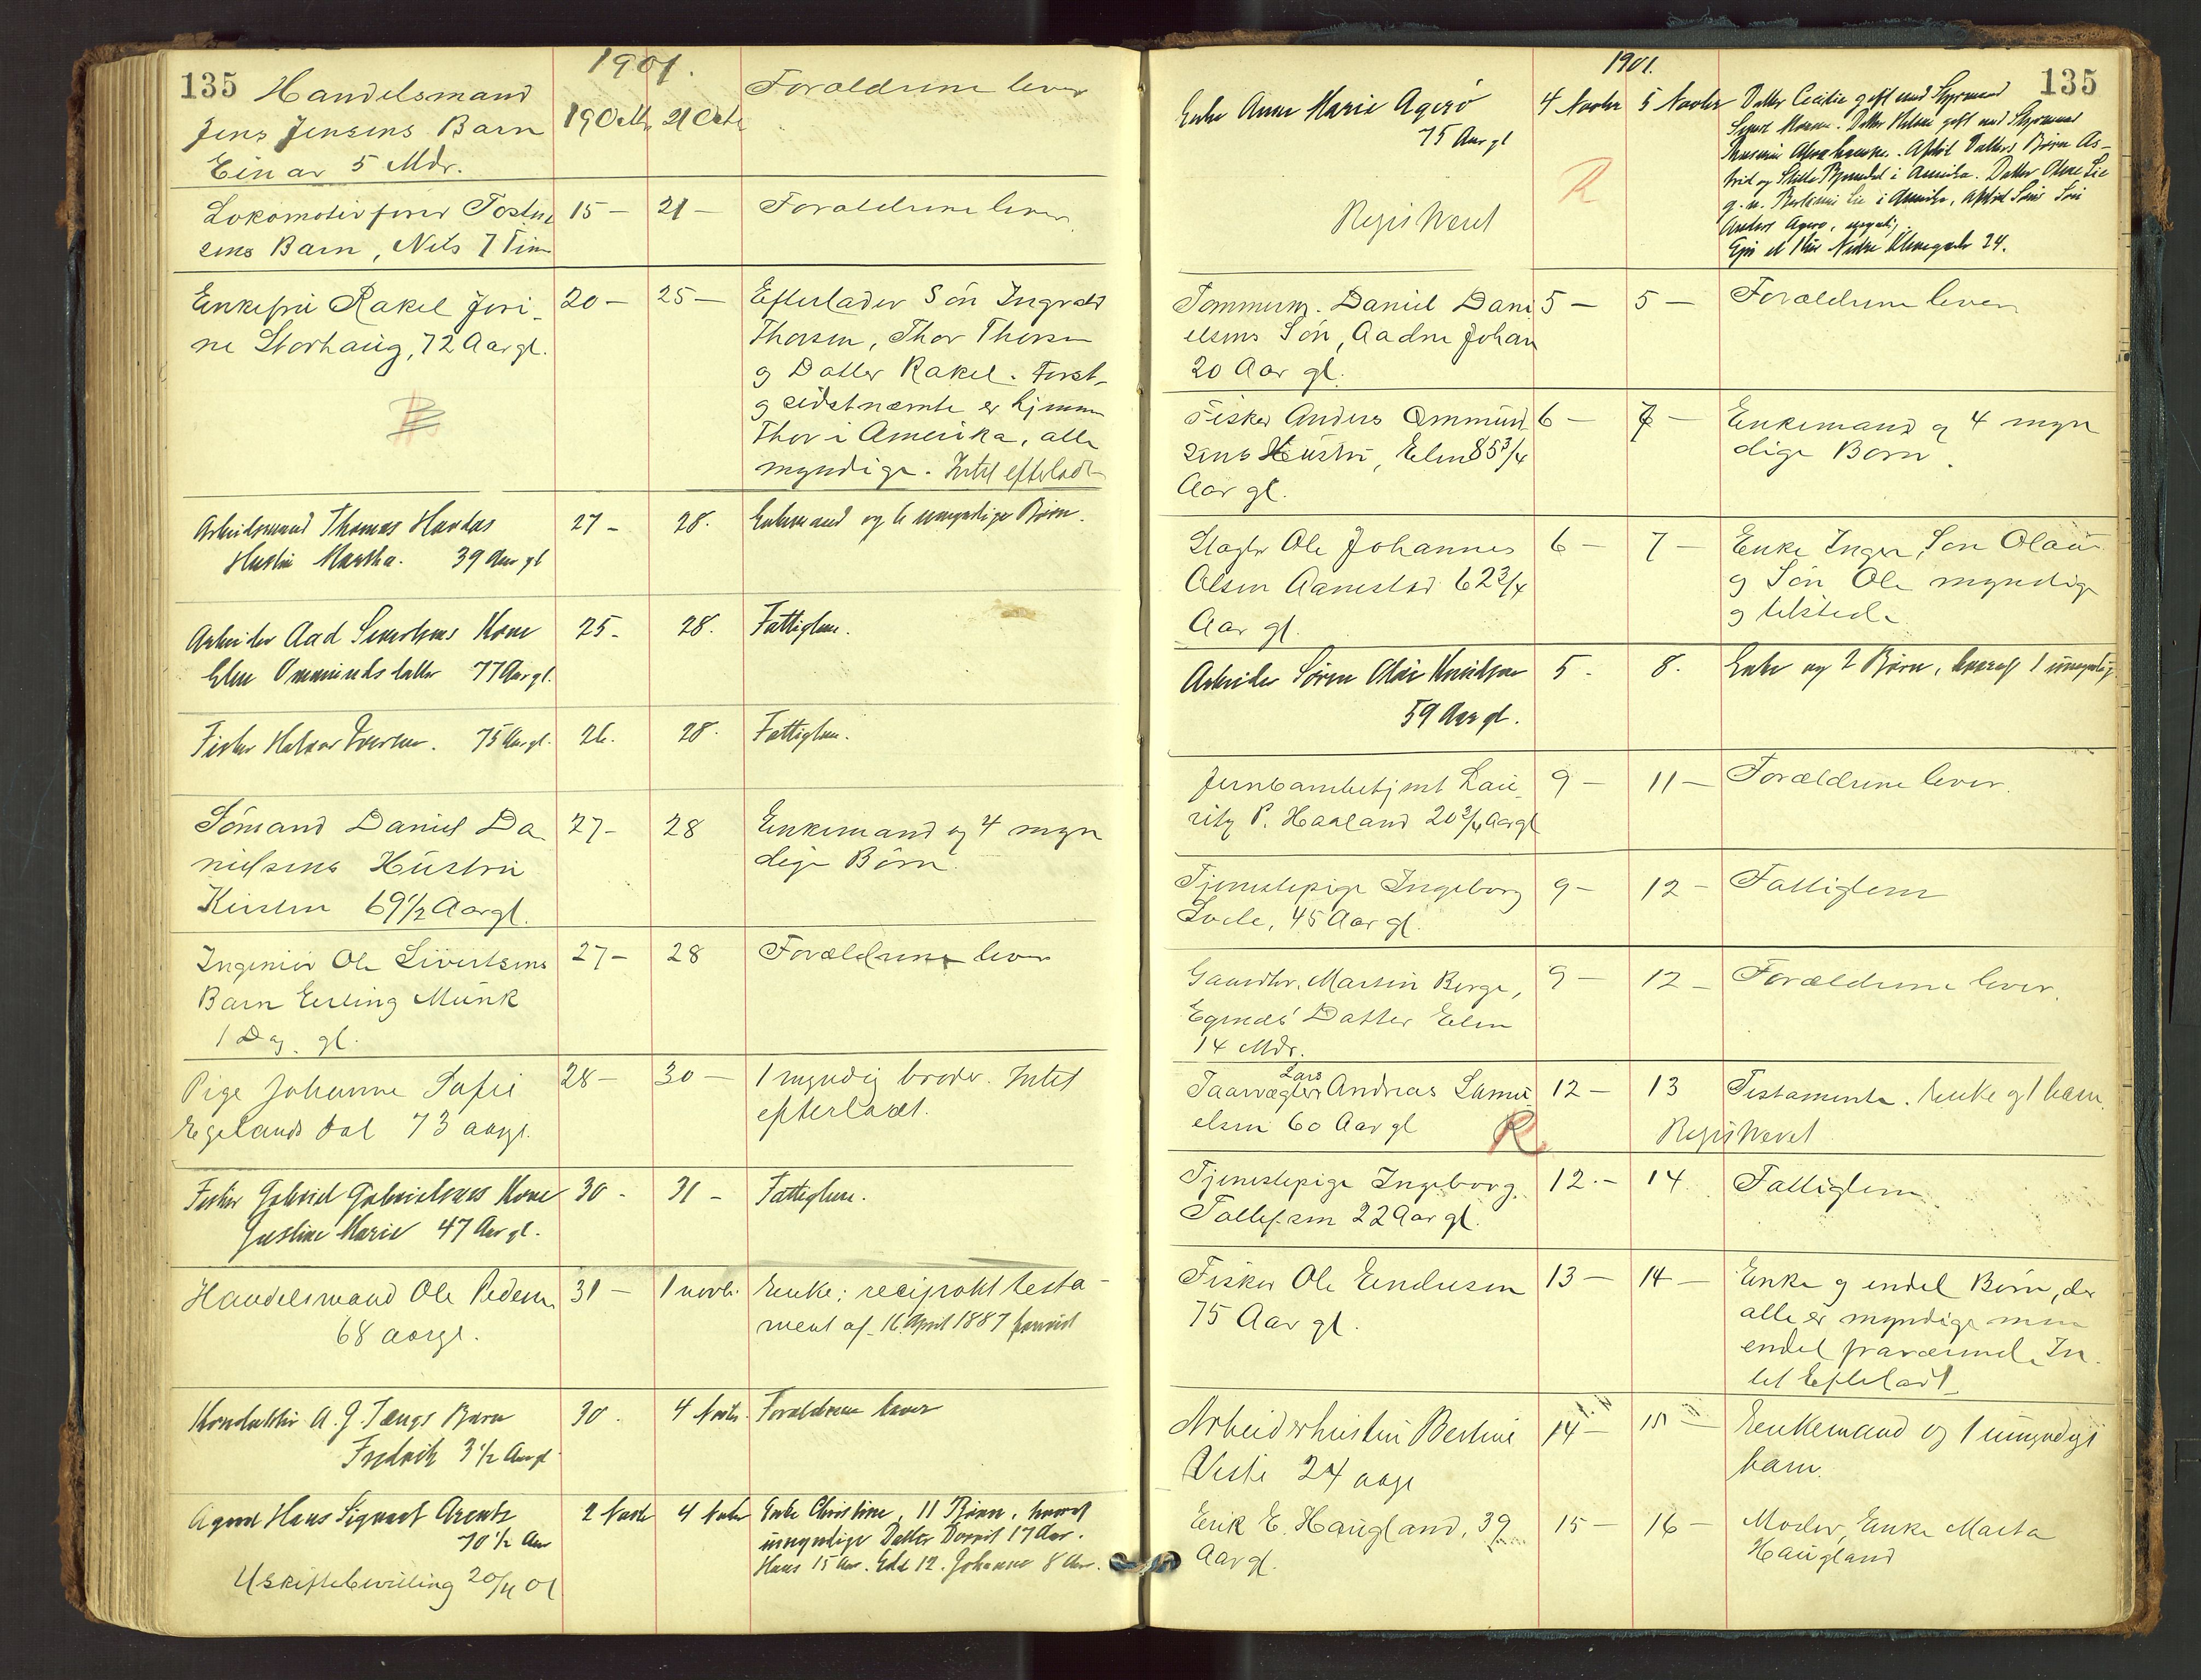 135
1901.
Handelsmand 19 Octb. 21 Octb. Forældrene lever
Jens Jensens Barn
Einar 5 Mdr.
Lokomotivfører Tosten 15 — 21 — Forældrene lever
sens Barn, Nils 7 Tim
Enkefru Rakel Jori- 20 — 25 — Efterlader Søn Ingvald
ne Storhaug, 72 Aar gl. Thorsen, Thor Thorsen
og Datter Rakel. Først-
og sidstnævnte er hjemme
Thor i Amerika, alle
myndige. Intet efterladt
Arbeidsmand Thomas Havdas 27 - 28. Enkemand og 6 umyndige Børn.
Hustru Martha. 39 Aar gl
Arbeider Aad Sivertsens Kone 25 - 28. Fattiglem.
Elen Ommundsdatter 77 Aar gl.
Fisker Halvor Iversen. 75 Aar gl. 26. 28. Fattiglem.
Sømand Daniel Da 27 - 28 Enkemand og 4 myn
nielsens Hustru dige Børn
Kirsten 69 1/2 Aar gl.
Ingeniør Ole Sivertsens 27 - 28 Forældrene lever
Barn Erling Munk
1 Dag. gl.
Pige Johanne Sofie 28 — 30 — 1 myndig broder. Intet
Egelandsdal 73 aargl. efterladt.
Fisker Gabriel Gabrielsens Kone 30 - 31 - Fattiglem.
Gustine Marie 47 Aar gl.
Handelsmand Ole Pedersen 31 — 1 novb. Enke; reciprokt testa-
68 aargl. ment af 16 April 1887 forevist
Konduktør A. J. Tængs Barn 30. 4 Novbr. Forældrene lever
Fredrik 3 1/2 Aar gl
Agent Hans Sigvart Arentz 2 Novbr 4 Novbr Enke Christine, 11 Børn, hvoraf
70 1/2 Aar umyndige Datter Dorrit 17 Aar.
Hans 15 Aar. 12. Johanne 8 Aar.
Uskiftebevilling 20/11 01
1901.
135
Enke Anne Marie Agerø 4 Novbr 5 Novbr Datter Cecilie gift med Styrmand
75 Aar gl Datter gift med Styrmand
Afdøde Datters Børn As-
trid og i Amerika. Datter Lie
R g. m. Lie i Amerika, Afdød Søns Søn
Registreret Anders Agerø,
Eier et Hus Nedre 24.
Tømmerm. Daniel Dani 5 — 5 — Forældrene lever
elsens Søn, Aadne Johan
20 Aar gl.
Fisker Anders Ommund 6 — 7 — Enkemand og 4 myn
sens Hustru, Elen 85 3/4 dige Børn
Aar gl.
Slagter Ole Johannes 6 — 7 — Enke Inger, Søn Olaus
Olsen Aanestad 62 3/4 og Søn Ole myndige
Aar gl. og tilstede
Arbeider Søren Olai Knudsen 5 - 8. Enke og 2 Børn, hvoraf 1 umyndig
59 Aar gl.
Jernbanebetjent Lau- 9 — 11 — Forældrene lever.
ritz P. Haaland 20 3/4 Aar gl
Tjenestepige Ingeborg 9 - 12 - Fattiglem
45 Aar gl.
Gaardbr. Martin Berge, 9 — 12 — Forældrene lever.
Egenæs' Datter Elen
14 Mdr.
Lars
Taarnvægter Andreas Samu- 12 — 13 Testamente. Enke og 1 barn.
elsen 60 Aar gl R Registreret
Tjenestepige Ingeborg 12. — 14 Fattiglem
Tollefsen 22 Aar gl.
Fisker Ole Endresen 13 — 14 — Enke og endel Børn, der
75 Aar gl. alle er myndige men
endel fraværende. In-
tet Efterladt
Arbeiderhustru Bertine 14 — 15 — Enkemand og 1 umyndigt
Viste 24 aargl barn.
Erik E. Haugland, 39 15 — 16 — Moder, Enke Marta
Aar gl. Haugland